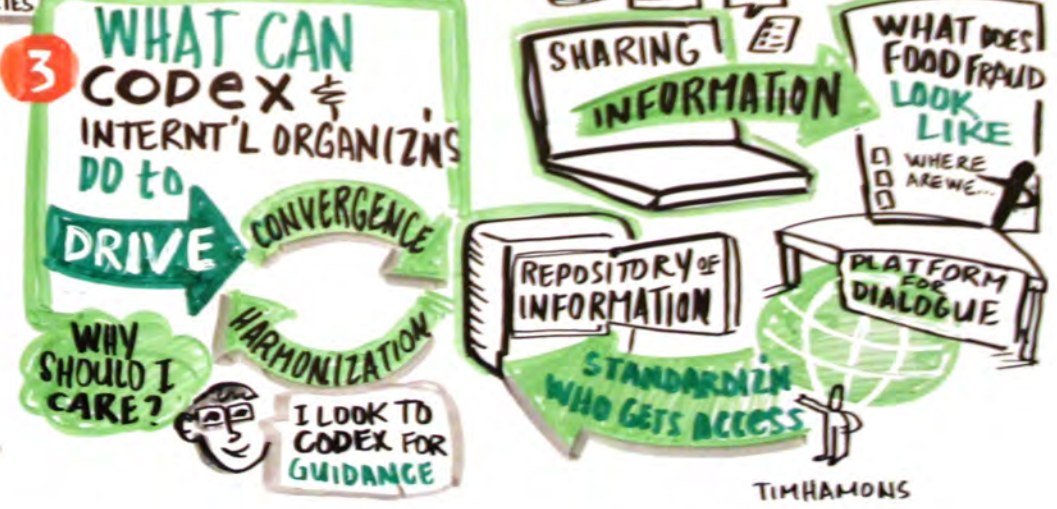 TIES
3
WHAT CAN
CODEX &
INTERNT'L ORGANIZ'NS
DO to
DRIVE
CONVERGENCE
HARMONIZATION
WHY
SHOULD I
CARE?
I LOOK TO
CODEX FOR
GUIDANCE
SHARING
INFORMATION
WHAT DOES
FOOD FRAUD
LOOK
LIKE
WHERE
ARE WE...
REPOSITORY OF
INFORMATION
PLATFORM
FOR
DIALOGUE
STANDARDIZ'N
WHO GETS ACCESS
TIMHAMONS